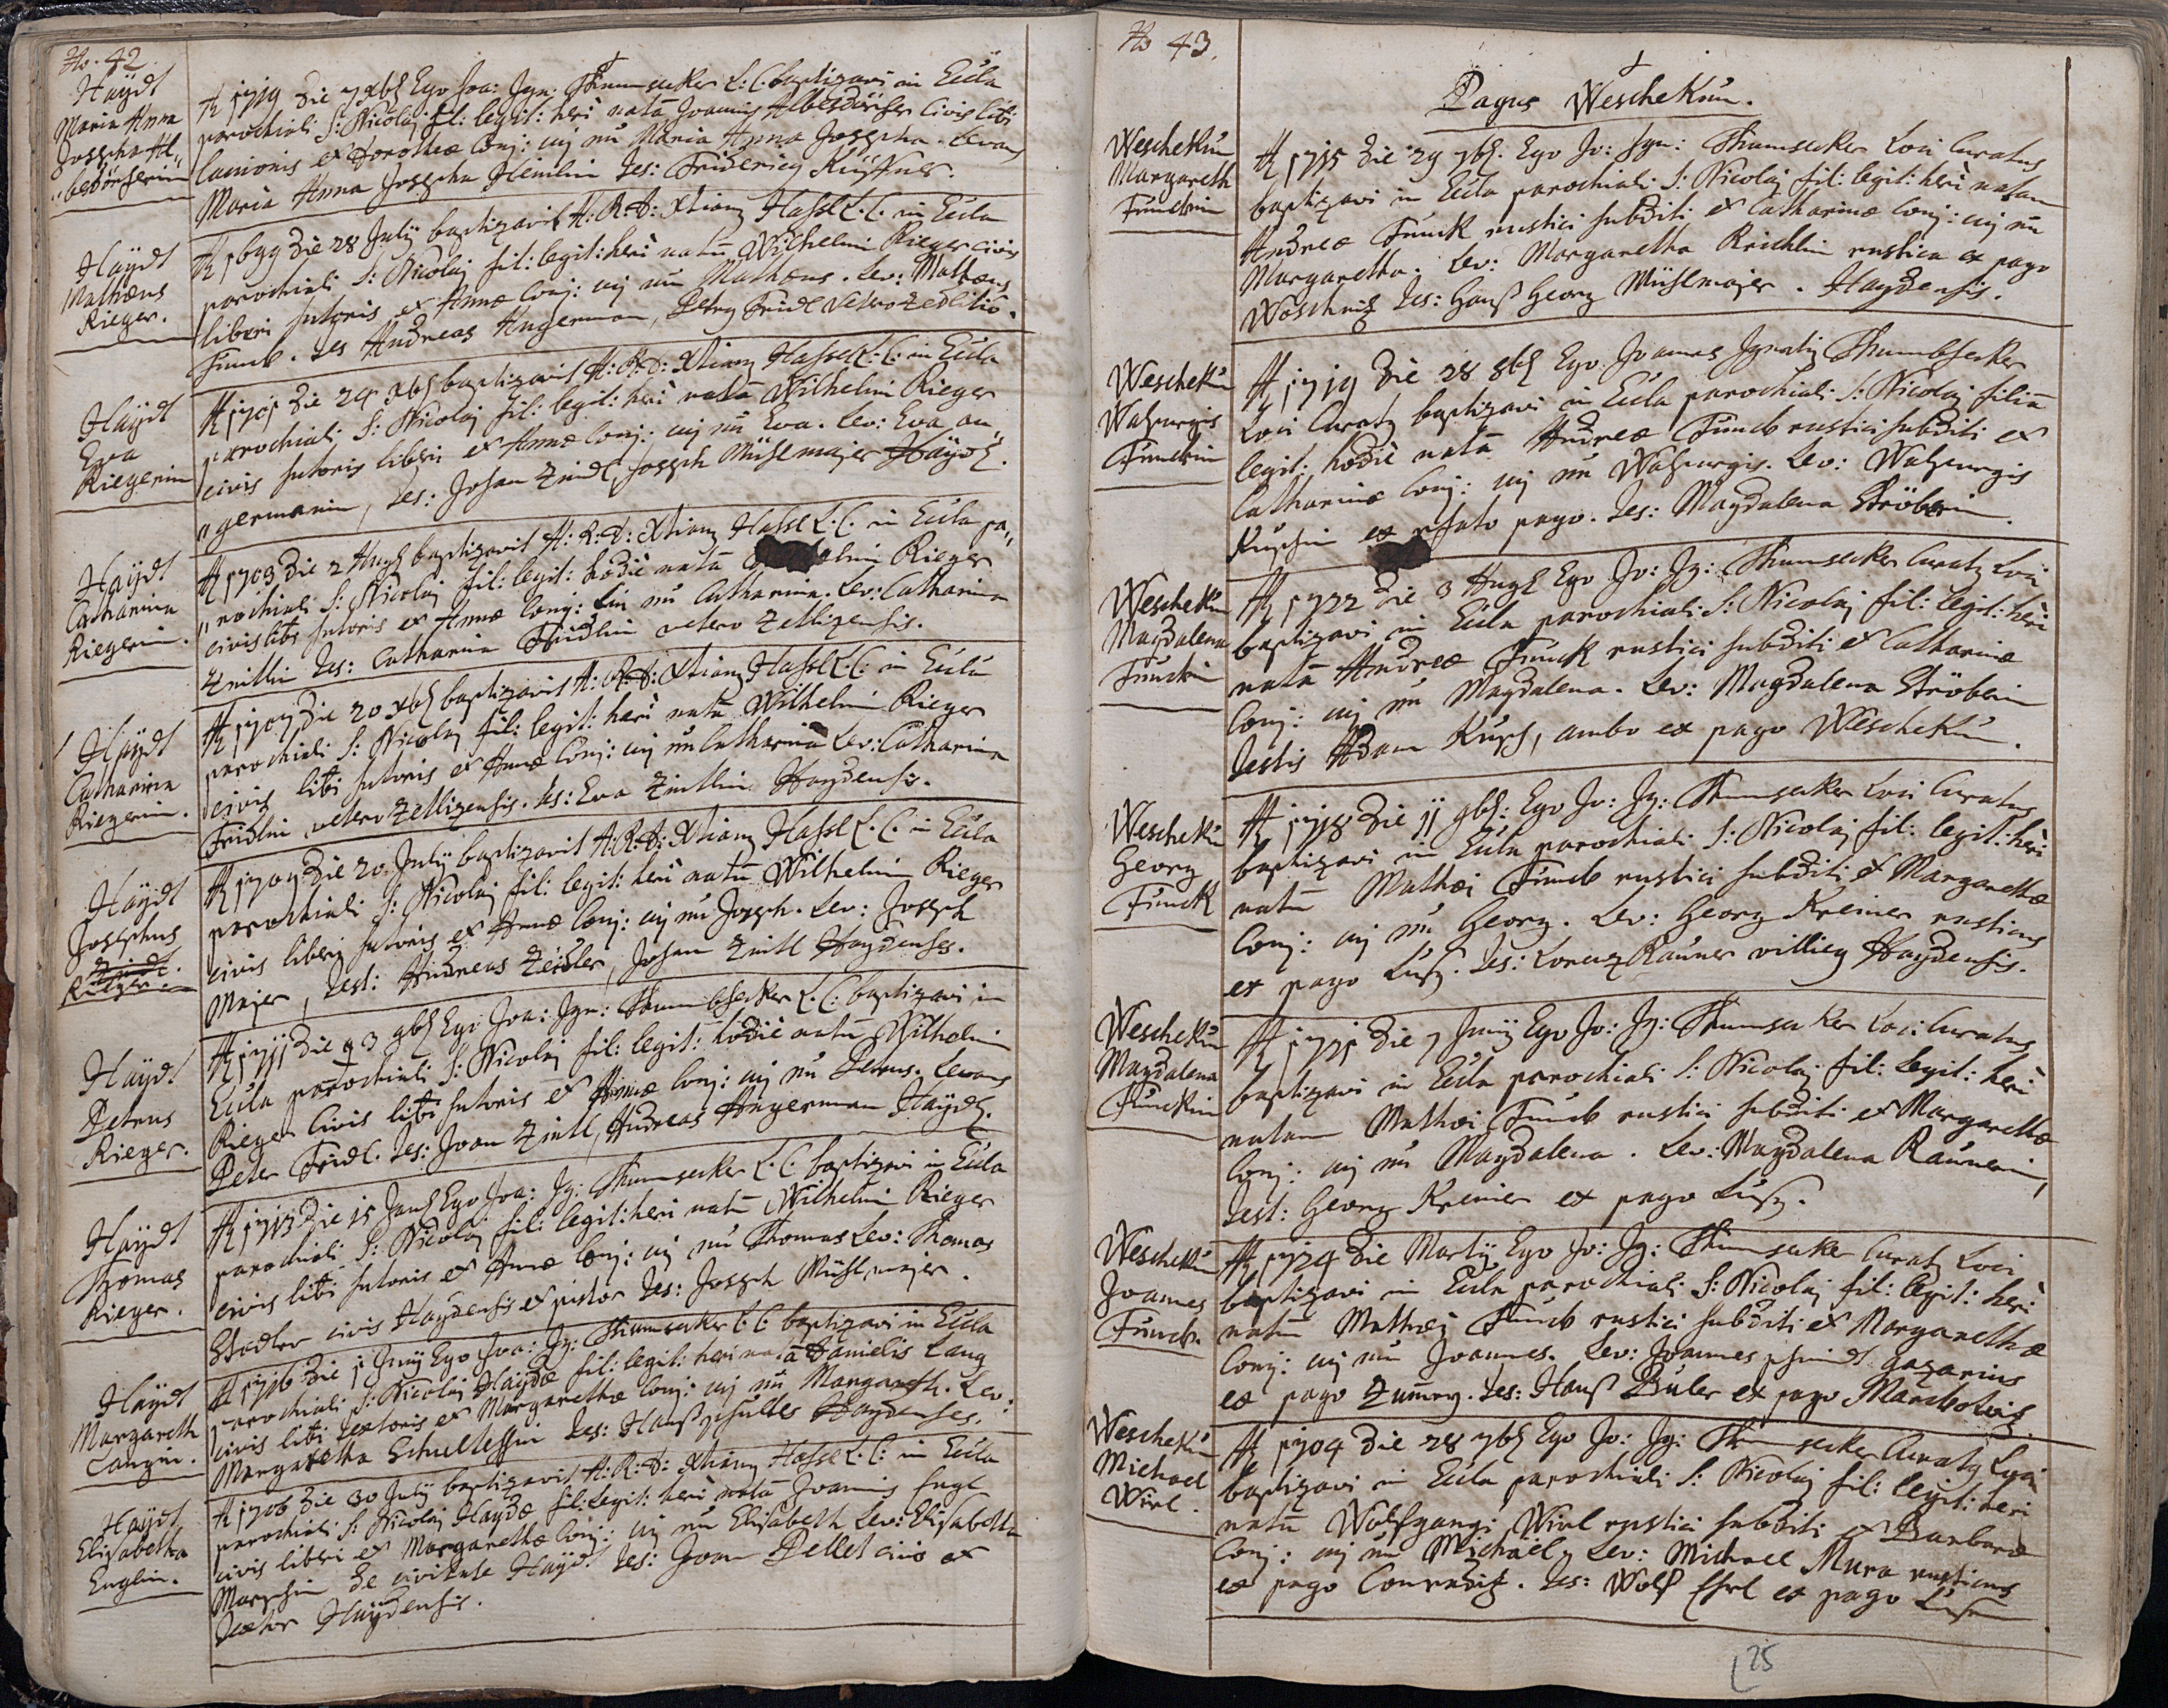 No. 42.
Haÿdt
Maria Anna
Josepha Al„
„besdörferin
A 1719 die 7 Xbs Ego Joa: Ign: Thumsecker L: C: baptizavi in Eccla
parochiali S: Nicolaj fil: legit: heri natã Joannis Albesdörfer Civis libi
Lanionis et Dorotheæ Conj: cuj nũ Maria Anna Josepha. Levans
Maria Anna Josepha Heinlin Tes: Fridericg Küffner.
Haÿdt
Mathæus
Rieger.
A 1699 die 28 Julÿ baptizavit A: R: D: Xtiang Hassl L: C: in Eccla
parochiali S: Nicolaj fil: legit: heri natũ Wilhelmi Rieger civis
liberi sutoris et Annæ Conj: cuj nũ Mathæus. Lev: Mathæus
Funck. Tes Andreas Angerman, Petrg Fridl Vetrozedlitio.
Haÿdt
Eva
Riegerin
A 1701 die 24 Xbs baptizavit A: R: D: Xtiang Hassel L: C: in Eccla
parochiali S: Nicolaj fil: legit: heri natã Wilhelmi Rieger
civis sutoris liberi et Annæ Conj: cuj nũ Eva. Lev: Eva an„
„germanin, Tes: Johan Zindl, Joseph Mühlmajer Haÿd.
Haÿdt
Catharina
Riegerin.
A 1703 die 2 Augs baptizavit A: R: D: Xtiang Hassl L: C: in Eccla pa„
„rochiali S: Nicolaj fil: legit: hodie natã elmi Rieger
civis libi sutoris et Annæ Conj: cui nũ Catharina. Lev: Catharina
Zeitlin Tes: Catharina Fridlin vetero Zetlizensis.
Haÿdt
Catharina
Riegerin.
A 1707 die 20 Xbs baptizavit A: R: D: Xtiang Hassl L: C: in Eccla
parochiali S: Nicolaj fil: legit: heri natã Wilhelmi Rieger
civis libi sutoris et Annæ Conj: cuj nũ Catharina Lev: Catharina
Fridlin vetero Zetlizensis. Tes: Eva Zintlin Haydensis.
Haÿdt
Josephus
Zindl.
Rieger.
A 1709 die 20 Julÿ baptizavit A: R: D: Xtiang Hassl L: C: in Eccla
parochiali S: Nicolaj fil: legit: heri natũ Wilhelmi Rieger
civis liberi sutoris et Annæ Conj: cuj nũ Joseph. Lev: Joseph
Majer, Test: Andreas Zeidler, Johan Zintl Haydenses.
Haÿdt
Petrus
Rieger.
A 1711 die 3 9bs Ego Joa: Ign: Thumbsecker L: C: baptizavi in
Eccla parochiali S: Nicolaj fil: legit: hodie natũ Wilhelmi
Rieger Civis libi sutoris et Annæ Conj: cuj nũ Petrus. Levans
Peter Fridl. Tes: Joan Zintl, Andreas Angerman Haÿd.
Haÿdt
Thomas
Rieger.
A 1713 die 15 Jans Ego Joa: Ig: Thumsecker L: C: baptizavi in Eccla
parochiali S: Nicolaj fil: legit: heri natũ Wilhelmi Rieger
civis libi sutoris et Annæ Conj: cuj nũ Thomas Lev: Thomas
Stadler civis Haydensis et pistor Tes: Joseph Mühlmajer.
Haÿdt
Margareth
Langin.
A 1716 die 11 Junÿ Ego Joa: Ig: Thumsecker L: C: baptizavi in Eccla
parochiali S: Nicolaj Haydæ fil: legit: heri natã Danielis Lang
civis libi Textoris et Margarethæ Conj: cuj nũ Margareth. Lev:
Margaretha Schultessin Tes: Hanß Schultes Haydenses.
Haÿdt
Elisabetha
Englin.
A 1706 die 30 Julÿ baptizavit A: R: D: Xtiang Hassl L: C: in Eccla
parochiali S: Nicolaj Haydæ fil: legit: heri natã Joannis Engl
civis liberi et Margarethæ Conj: cuj nũ Elisabeth Lev: Elisabetha
de civitate Haÿdt Tes: Joan Pellet civis et
textor Haÿdensis.
No 43.
Pagus Weschekun.
Weschekũ
Margareth
Funckin
A 1715 die 29 7bs. Ego Jo: Ign: Thumsecker Loci Curatus
baptizavi in Eccla parochiali S: Nicolaj fil: legit: heri natam
Andreæ Funck rustici subditi et Catharinæ Conj: cuj nũ
Margaretha. Lev: Margaretha Reichlin rustica ex pago
Woschnitz Tes: Hanß Georg Mühlmajer. Haydensis.
Weschekũ
Walpurgis
Funckin
A 1719 die 28 8bs Ego Joannes Ignatig Thumbsecker
Loci Curatg baptizavi in Eccla parochiali S: Nicolaj filiã
legit: hodie natã Andreæ Funck rustici subditi et
Catharinæ Conj: cuj nũ Walpurgis. Lev: Walpurgis
ex psato pago. Tes: Magdalena Ströberin.
Weschekũ
Magdalena
Funckin
A 1722 die 3 Augs Ego Jo: Ig: Thumsecker Curatg Loci
baptizavi in Eccla parochiali S: Nicolaj fil: legit: heri
natã Andreæ Funck rustici subditi et Catharinæ
Conj: cuj nũ Magdalena. Lev: Magdalena Ströberin
Testis Adam Kups, ambo ex pago Weschekũ.
Weschekũ
Georg
Funck
A 1718 die 11 9bs: Ego Jo: Ig: Thumsecker Loci Curatus
baptizavi in Eccla parochiali S: Nicolaj fil: legit: heri
natũ Mathæi Funck rustici subditi et Margarethæ
Conj: cuj nũ Georg. Lev: Georg Kreiner rusticus
ex pago Lusz. Tes: Lorenz Rauner villicg Haydensis.
Weschekũ
Magdalena
Funckin
A 1721 die 7 Junÿ Ego Jo: Ig: Thumsecker Loci Curatus
baptizavi in Eccla parochiali S: Nicolaj fil: legit: heri
natam Mathæi Funck rustici subditi et Margarethæ
Conj: cuj nũ Magdalena. Lev: Magdalena Raunerin,
Test: Georg Kreiner ex pago Lusz.
Weschekũ
Joannes
Funck.
A 1724 die Martÿ Ego Jo: Ig: Thumsecker Curatg Loci
baptizavi in Eccla parochiali S: Nicolaj fil: legit: heri
natũ Mathæj Funck rustici subditi et Margarethæ
Conj: cuj nũ Joannes. Lev: Joannes Schmidt gazarius
ex pago Zumrg. Tes: Hanß Buler ex pago
Weschekũ
Michael
Wirl.
A 1704 die 28 7bs Ego Jo: Ig: Thumsecker Curatg Loci
baptizavi in Eccla parochiali S: Nicolaj fil: legit: heri
natũ Wolfgangi Wirl rustici subditi et Barbaræ
Conj: cuj nũ Michael, Lev: Michael Mura rusticus
ex pago Conradiz. Tes: Wolf ex pago
25